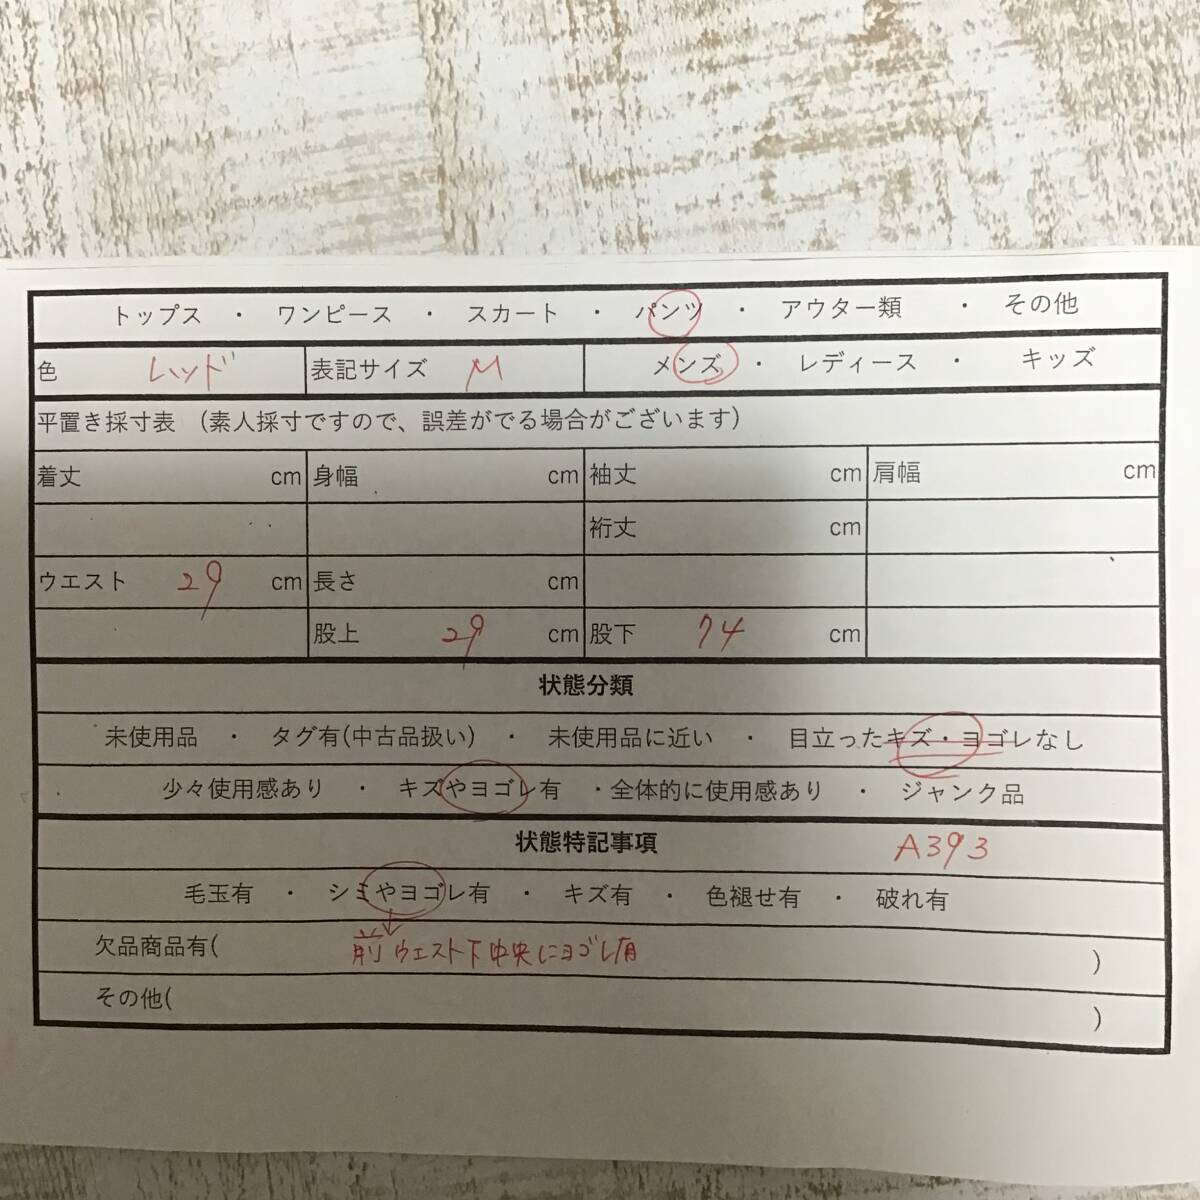 トップス ・ ワンピース ・ スカート ・ パンツ ・ アウター類 ・ その他
色 レッド 表記サイズ M メンズ ・ レディース ・ キッズ
平置き採寸表 (素人採寸ですので、誤差がでる場合がございます)
着丈 cm 身幅 cm 袖丈 cm 肩幅 cm
裄丈 cm
ウエスト 29 cm 長さ cm
股上 29 cm 股下 74 cm
状態分類
未使用品 ・ タグ有(中古品扱い) ・ 未使用品に近い ・ 目立ったキズ・ヨゴレなし
少々使用感あり ・ キズやヨゴレ有 ・全体的に使用感あり ・ ジャンク品
状態特記事項 A393
毛玉有 ・ シミやヨゴレ有 ・ キズ有 ・ 色褪せ有 ・ 破れ有
欠品商品有( 前ウエスト下中央にヨゴレ有 )
その他( )